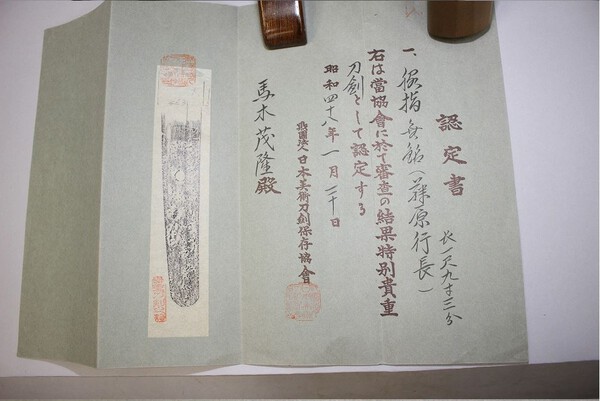 認定書
一、脇指 無銘（藤原行長）
长一尺九寸三分
右は當協會に於て審査の結果特別貴重
刀劍として認定する
昭和四十八年一月二十日
財團法人日本美術刀劍保存協會
馬木茂隆殿